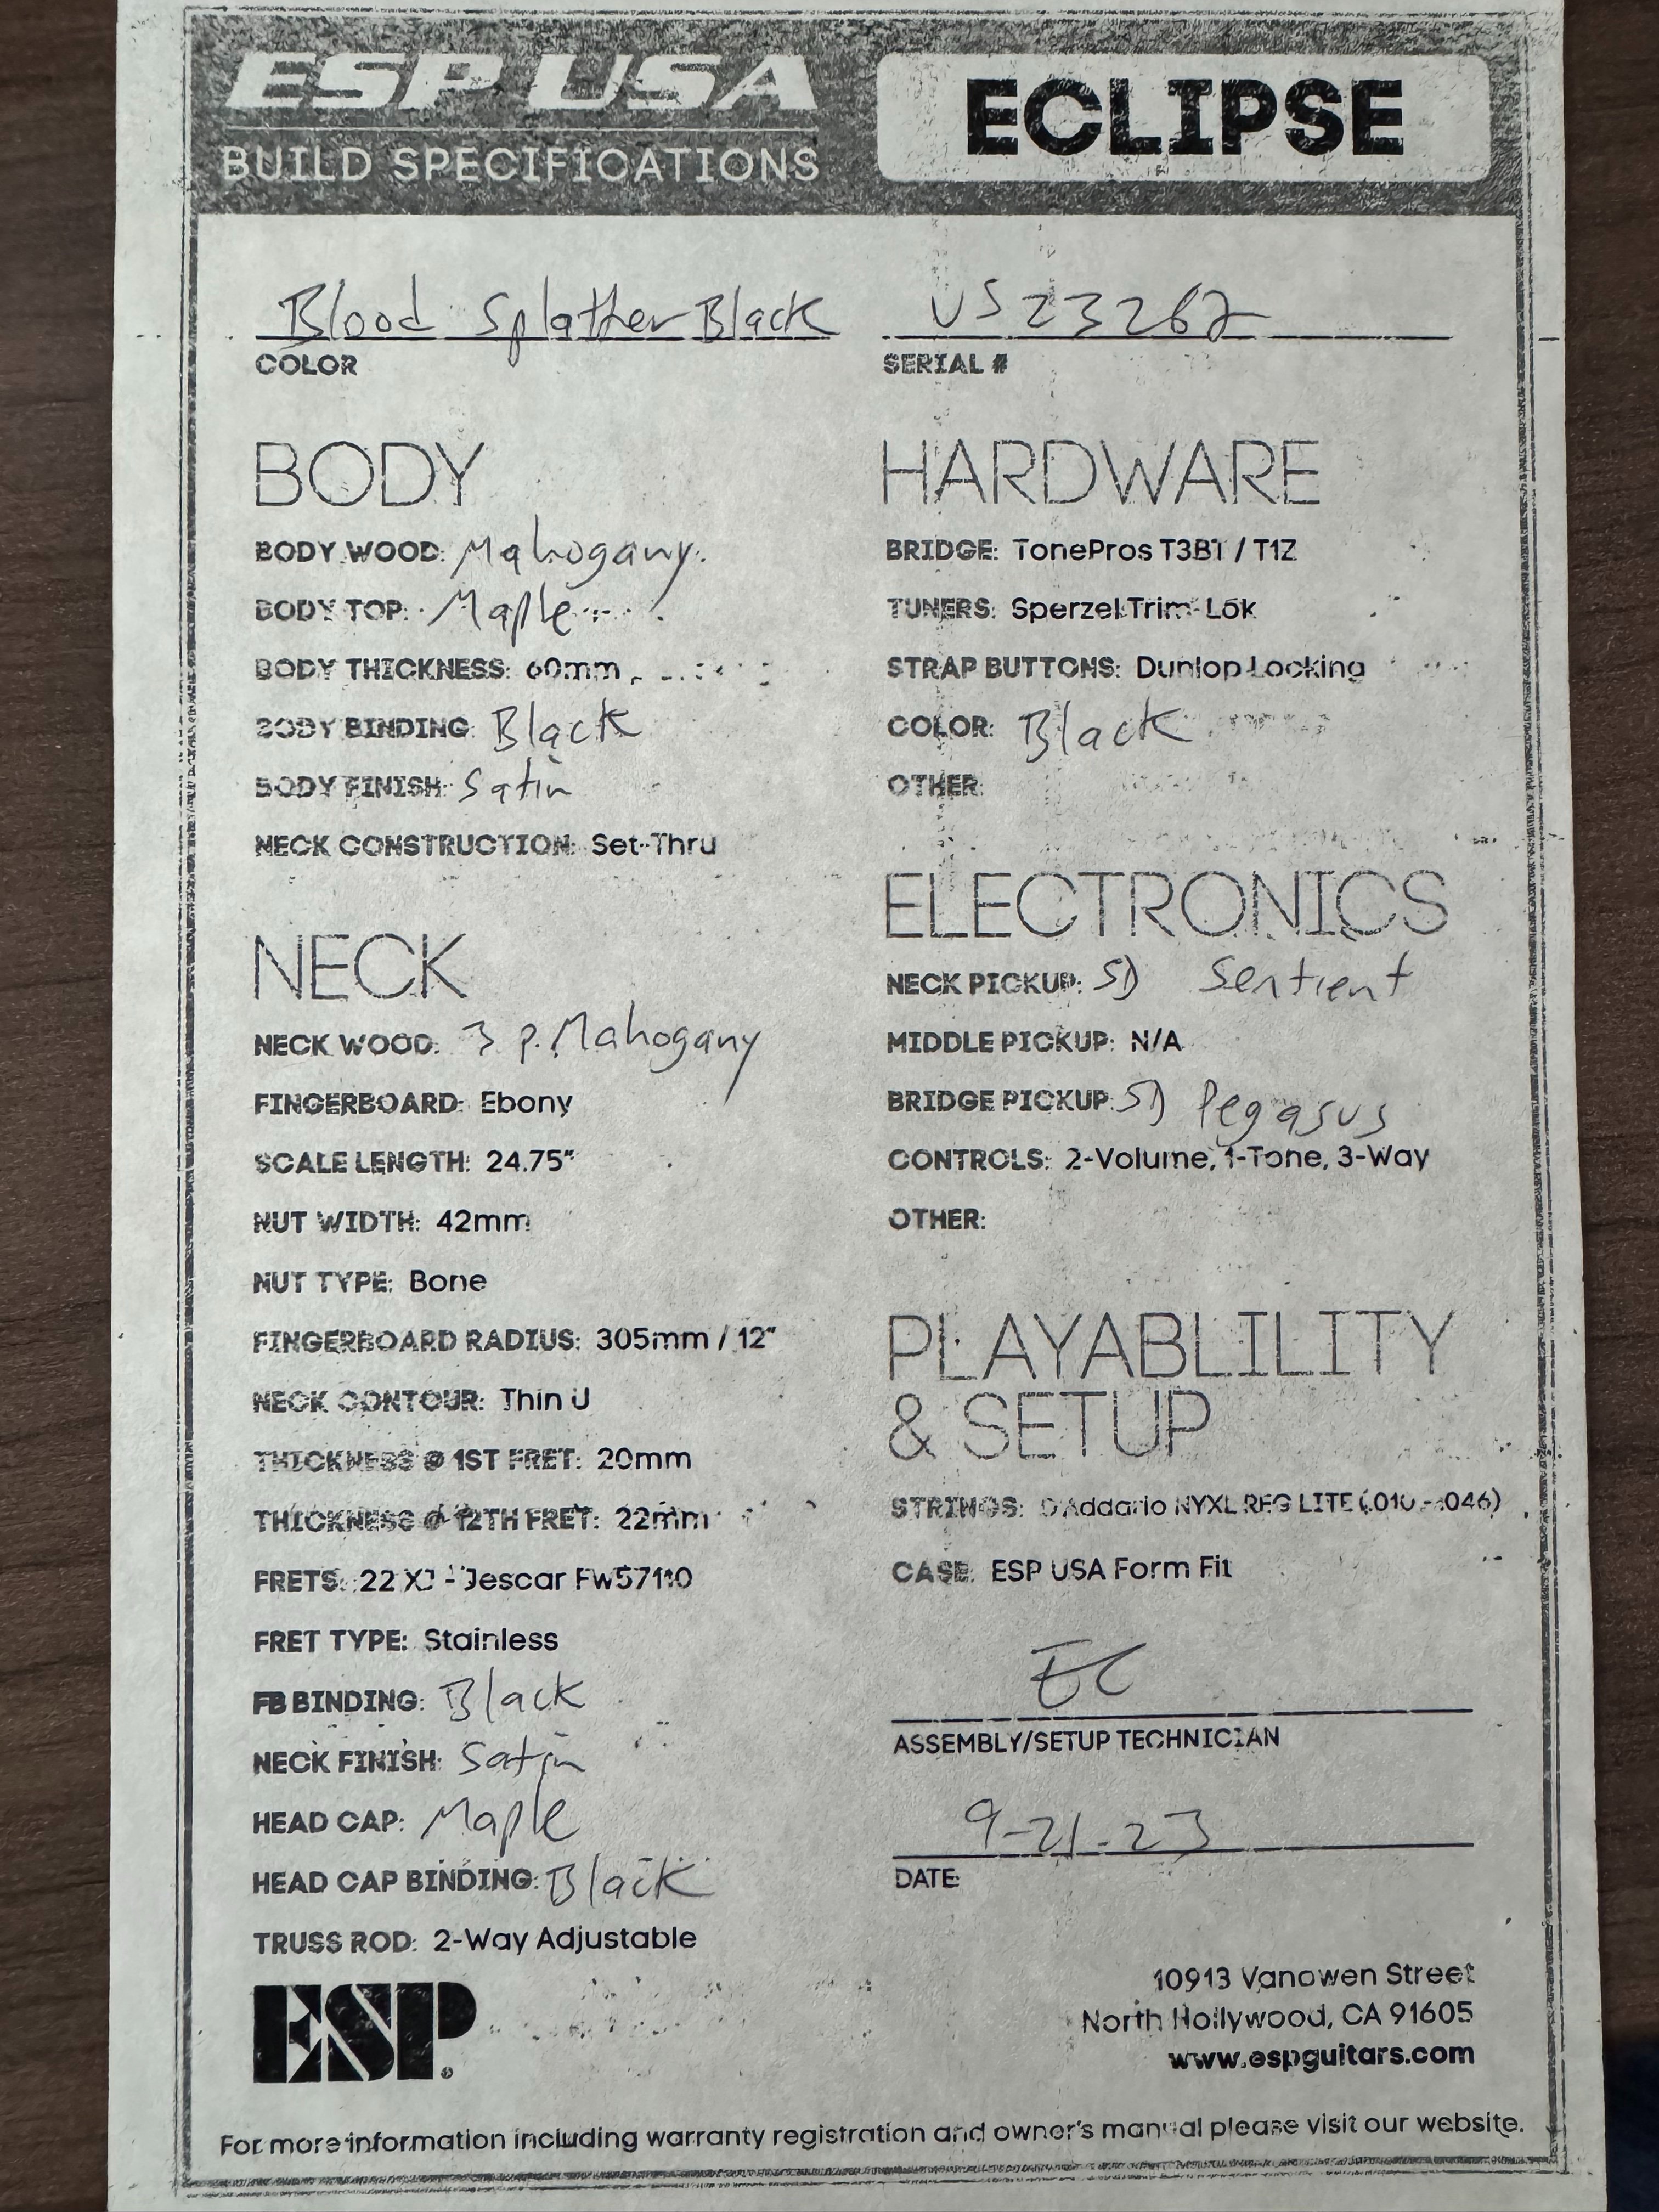 ESP USA
BUILD SPECIFICATIONS
ECLIPSE
Blood Splatter Black
COLOR
US23262
SERIAL #
BODY
BODY WOOD: Mahogany
BODY TOP: Maple
BODY THICKNESS: 60mm
BODY BINDING: Black
BODY FINISH: Satin
NECK CONSTRUCTION: Set-Thru
NECK
NECK WOOD: 3 p. Mahogany
FINGERBOARD: Ebony
SCALE LENGTH: 24.75"
NUT WIDTH: 42mm
NUT TYPE: Bone
FINGERBOARD RADIUS: 305mm / 12"
NECK CONTOUR: Thin U
THICKNESS @ 1ST FRET: 20mm
THICKNESS @ 12TH FRET: 22mm
FRETS: 22 XJ - Jescar FW57110
FRET TYPE: Stainless
FB BINDING: Black
NECK FINISH: Satin
HEAD CAP: Maple
HEAD CAP BINDING: Black
TRUSS ROD: 2-Way Adjustable
HARDWARE
BRIDGE: TonePros T3BT / T1Z
TUNERS: Sperzel Trim-Lok
STRAP BUTTONS: Dunlop Locking
COLOR: Black
OTHER:
ELECTRONICS
NECK PICKUP: SD Sentient
MIDDLE PICKUP: N/A
BRIDGE PICKUP: SD Pegasus
CONTROLS: 2-Volume, 1-Tone, 3-Way
OTHER:
PLAYABLILITY
& SETUP
STRINGS: D'Addario NYXL REG LITE (.010 - .046)
CASE: ESP USA Form Fit
EC
ASSEMBLY/SETUP TECHNICIAN
9-21-23
DATE:
ESP
10913 Vanowen Street
North Hollywood, CA 91605
www.espguitars.com
For more information including warranty registration and owner's manual please visit our website.